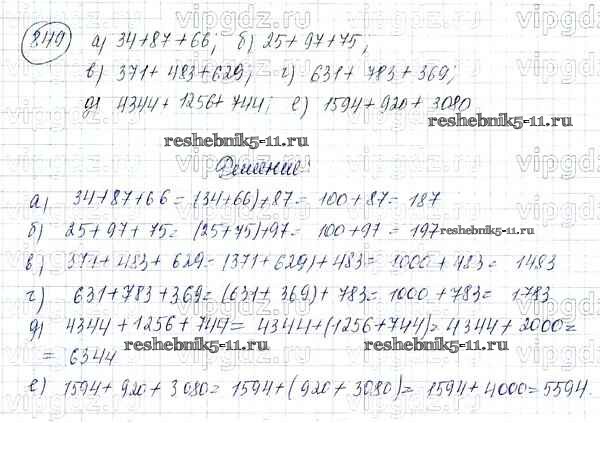 849 а) 34+87+66; б) 25+97+75;
в) 371+483+629; г) 631+783+369;
д) 4344+1256+744; е) 1594+920+3080
reshebnik5-11.ru reshebnik5-11.ru
Решение:
а) 34+87+66=(34+66)+87=100+87=187
б) 25+97+75=(25+75)+97=100+97=197
reshebnik5-11.ru
в) 371+483+629=(371+629)+483=1000+483=1483
г) 631+783+369=(631+369)+783=1000+783=1783
д) 4344+1256+744=4344+(1256+744)=4344+2000=
=6344
reshebnik5-11.ru reshebnik5-11.ru
е) 1594+920+3080=1594+(920+3080)=1594+4000=5594.